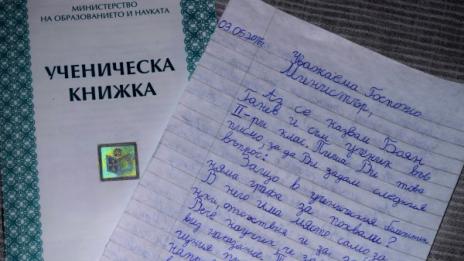 МИНИСТЕРСТВО
НА ОБРАЗОВАНИЕТО И НАУКАТА
УЧЕНИЧЕСКА
КНИЖКА
Уважаема Госпожо
Министър,
Аз се казвам Боян
Ганев и съм ученик във
II-ри клас. Пиша Ви това
писмо, за да Ви задам следния
въпрос:
Защо в ученическия бележник
няма графа за похвали?
В него има място само за
отсъствия и за
Вече научих